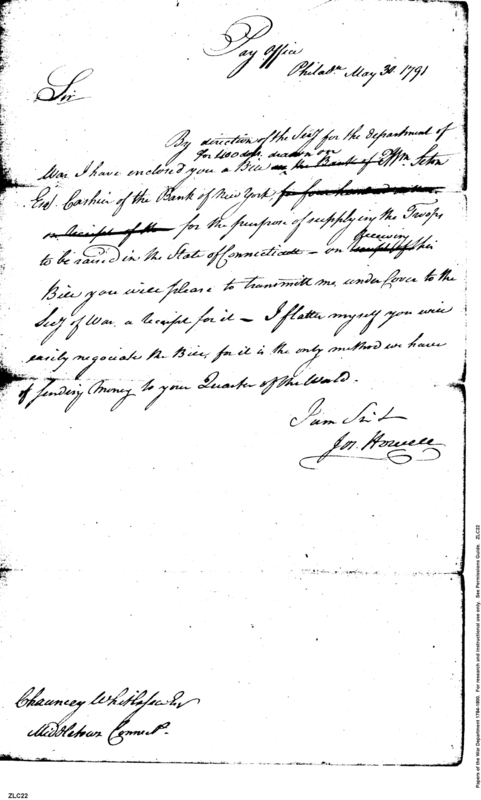 Pay Office
Philada. May 30 1791
Sir
By direction of the Secy for the department of
for 400 dols. drawn on
War I have enclosed you a Bill on the Bank of Wm Seton
Esq. Cashier of the Bank of New York for four hundred
on receipt of the for the purpose of supplying the Troops
receiving
to be raised in the State of Connecticutt - on receipt of this
Bill you will please to transmitt me, under Cover to the
Secy of War, a receipt for it - I flatter myself you will
easily negociate the Bill, for it is the only method we have
of sending Money to your Quarter of the World.
I am Sir &
Jos. Howell
Chauncey Whittlesey Esq
Middletown Connect.
ZLC22
Papers of the War Department 1784-1800. For research and instructional use only. See Permissions Guide. ZLC22